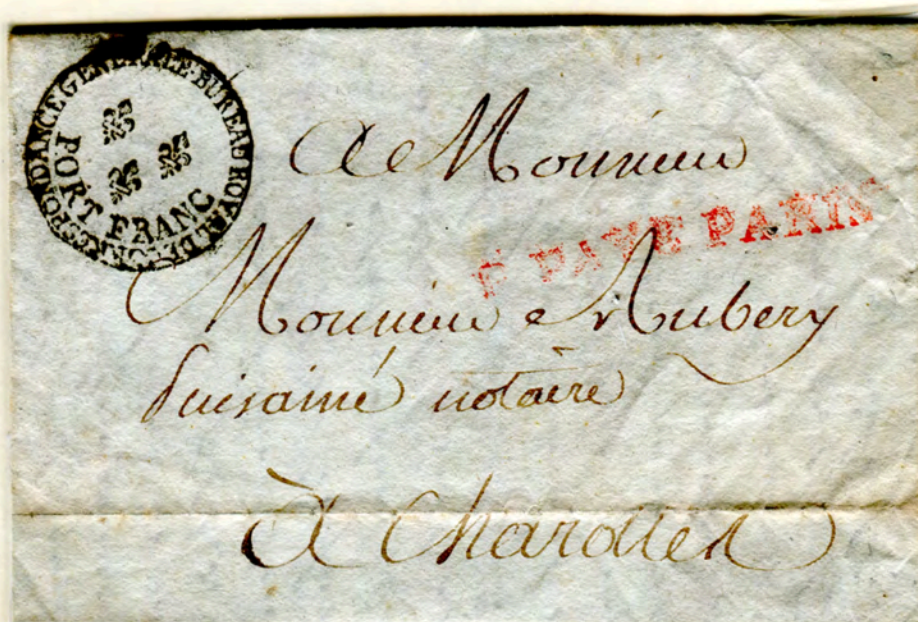 BUREAU ROYAL DE CORRESPONDANCE GENERALE
PORT FRANC
A Monsieur
P. PAYE PARIS
Monsieur Aubery
puisainé notaire
A Charolles